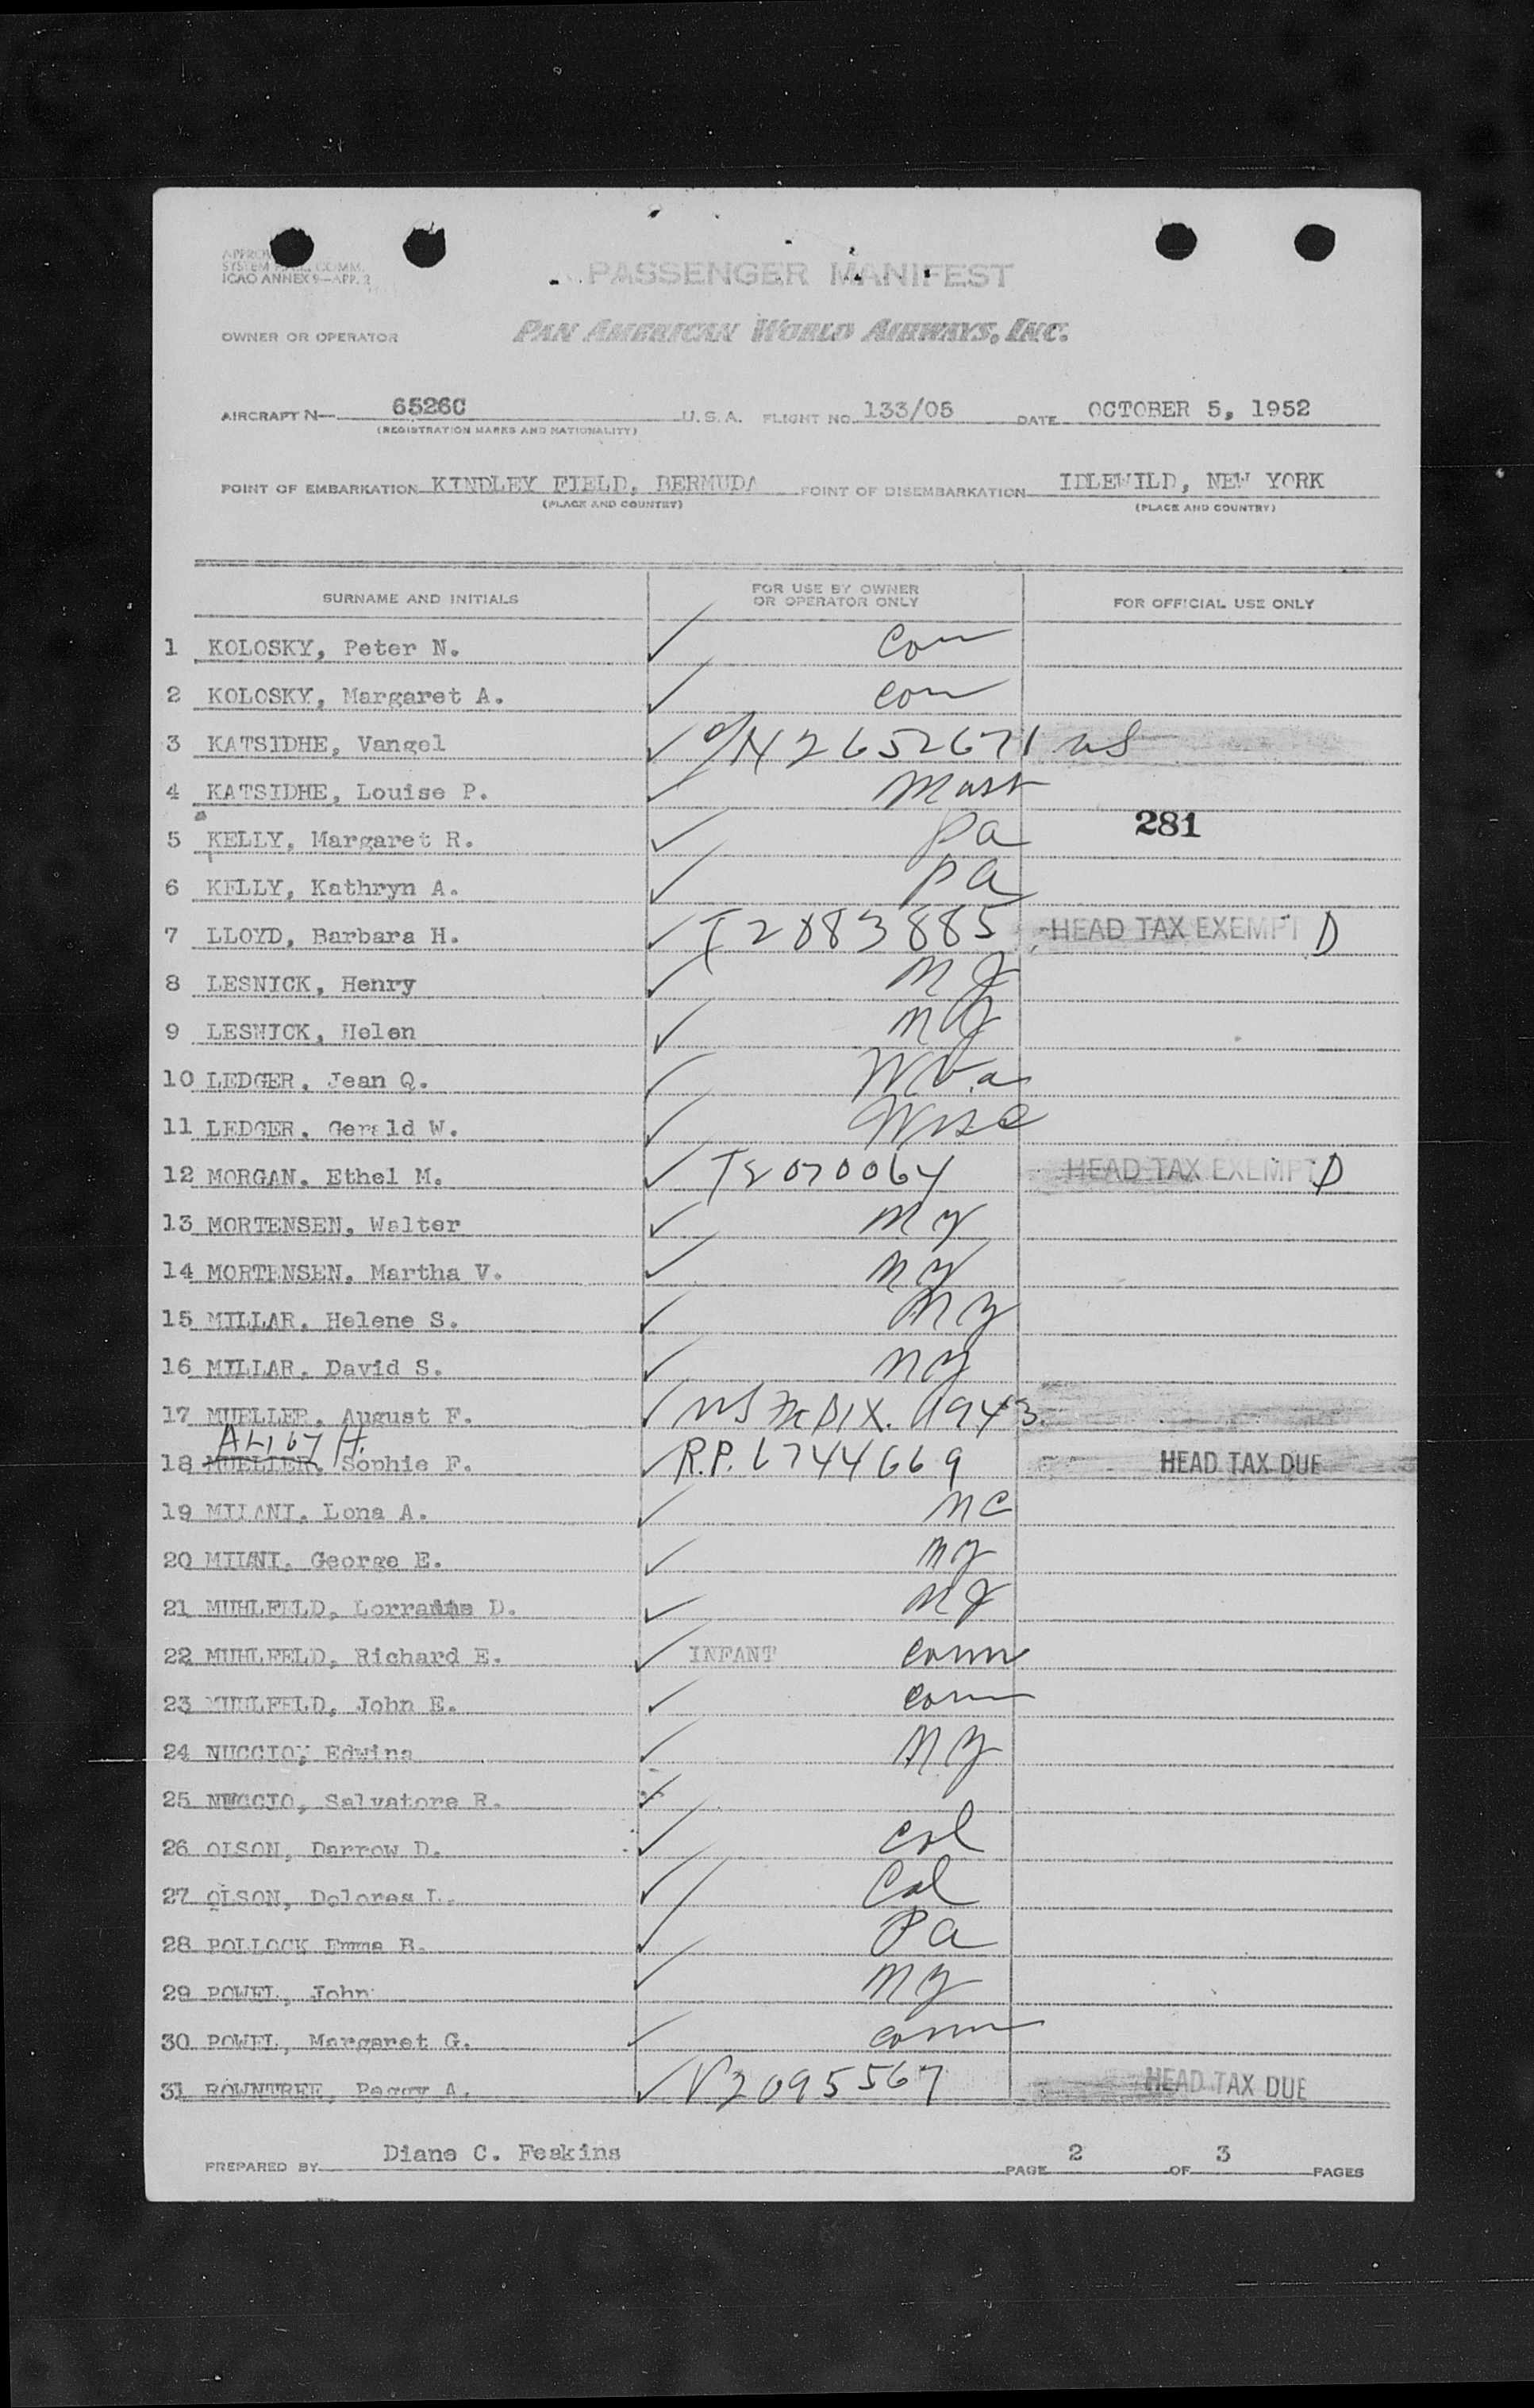 SYSTEM COMM.
ICAO ANNEX 9—APP. 2
PASSENGER MANIFEST
OWNER OR OPERATOR PAN AMERICAN WORLD AIRWAYS, INC.
AIRCRAFT N— 6526C U.S.A. FLIGHT NO. 133/05 DATE OCTOBER 5, 1952
(REGISTRATION MARKS AND NATIONALITY)
POINT OF EMBARKATION KINDLEY FIELD, BERMUDA POINT OF DISEMBARKATION IDLEWILD, NEW YORK
(PLACE AND COUNTRY) (PLACE AND COUNTRY)
SURNAME AND INITIALS FOR USE BY OWNER OR OPERATOR ONLY FOR OFFICIAL USE ONLY
1 KOLOSKY, Peter N. ✓ Con
2 KOLOSKY, Margaret A. ✓ Con
3 KATSIDHE, Vangel ✓ 2652671 US
4 KATSIDHE, Louise P. ✓ Mass
281
5 KELLY, Margaret R. ✓ Pa
6 KELLY, Kathryn A. ✓ Pa
7 LLOYD, Barbara H. ✓ I2083885 HEAD TAX EXEMPT D
8 LESNICK, Henry ✓ NJ
9 LESNICK, Helen ✓ NJ
10 LEDGER, Jean Q. ✓ W Va
11 LEDGER, Gerald W. ✓ Wisc
12 MORGAN, Ethel M. ✓ I2070064 HEAD TAX EXEMPT D
13 MORTENSEN, Walter ✓ NY
14 MORTENSEN, Martha V. ✓ NY
15 MILLAR, Helene S. ✓ NY
16 MILLAR, David S. ✓ NY
17 MUELLER, August F. ✓ DIX. 1943
18 MUELLER, Sophie F. ✓ R.P. 6744669 HEAD TAX DUE
19 MILANI, Lona A. ✓ NC
20 MILANI, George E. ✓ NY
21 MUHLFELD, D. ✓ NJ
22 MUHLFELD, Richard E. ✓ INFANT Conn
23 MUHLFELD, John E. ✓ Conn
24 NUCCIO, Edwina ✓ NY
25 NUCCIO, Salvatore R. ✓
26 OLSON, Darrow D. ✓ Col
27 OLSON, Dolores L. ✓ Col
28 POLLOCK Emma B. ✓ Pa
29 POWEL, John ✓ NY
30 POWEL, Margaret G. ✓ Conn
31 ROWNTREE, Peggy A. ✓ V2095567 HEAD TAX DUE
PREPARED BY Diane C. Feakins PAGE 2 OF 3 PAGES